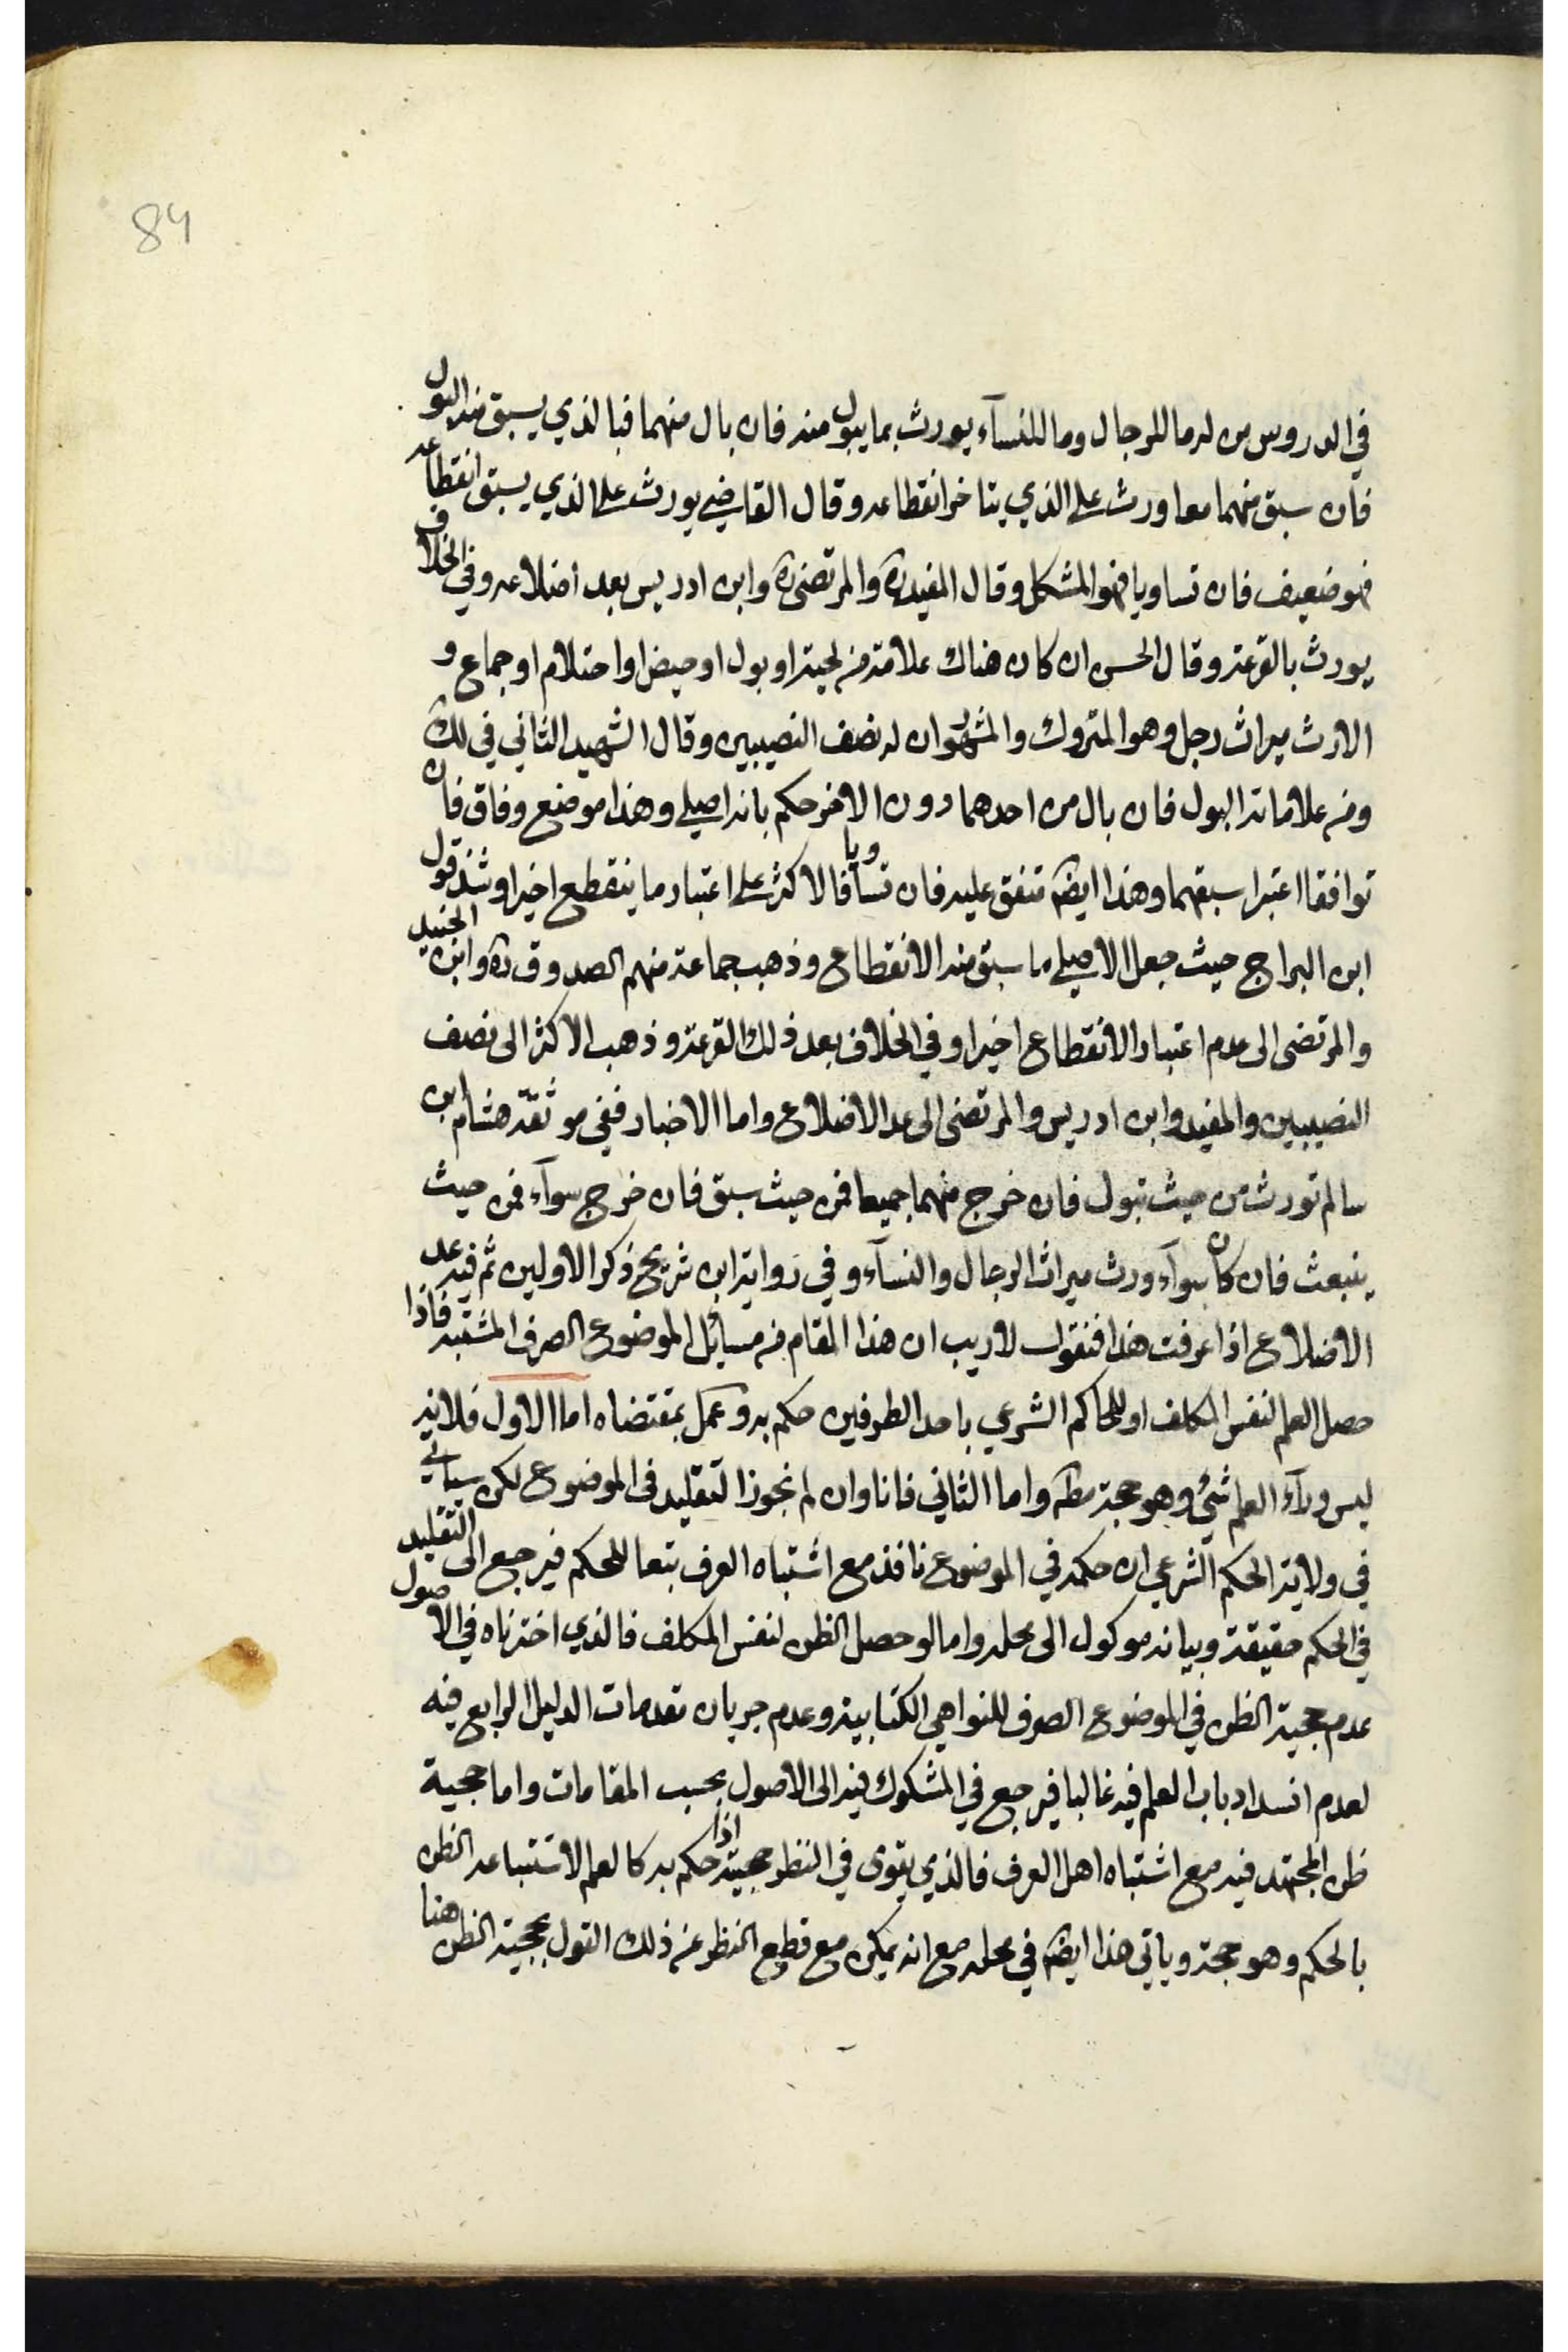 84
في الدروس من له ما للرجال وما للنساء يورث بما يبول منه فان بال منهما فبالذي يسبق منه البول
فان سبق منهما معا ورث على الذي يتاخر انقطاعه وقال القاضي يورث على الذي يسبق انقطاعه
فهو ضعيف فان تساويا فهو المشكل وقال المفيد ره والمرتضى ره وابن ادريس بعد اضلاعه وفي الخلاف
يورث بالقرعة وقال الحسن ان كان هناك علامة من لحية او بول او حيض او احتلام او جماع و
الا ورث ميراث رجل وهو المتروك والمشهور ان له نصف النصيبين وقال الشهيد الثاني في لك
ومن علاماته البول فان بال من احدهما دون الاخر حكم بانه اصيلي وهذا موضع وفاق فان
توافقا اعتبر اسبقهما وهذا ايضا متفق عليه فان تساويا فالاكثر على اعتبار ما ينقطع اخيرا وشذ قول
ابن البراج حيث جعل الاصيلي ما سبق منه الانقطاع وذهب جماعة منهم الصدوق ره وابن الجنيد
والمرتضى الى عدم اعتبار الانقطاع اخيرا وفي الخلاف بعد ذلك القرعة وذهب الاكثر الى نصف
النصيبين والمفيد وابن ادريس والمرتضى الى عد الاضلاع واما الاخبار ففي موثقة هشام ابن
سالم تورث من حيث تبول فان خرج منهما جميعا فمن حيث سبق فان خرج سوآء فمن حيث
ينبعث فان كان سوآء ورث ميراث الرجال والنسآء وفي رواية ابن شريح ذكر الاولين ثم فيه عد
الاضلاع اذا عرفت هذا فنقول لا ريب ان هذا المقام من مسائل الموضوع الصرف المشتبه فاذا
حصل العلم لنفس المكلف او للحاكم الشرعي باحد الطرفين حكم به وعمل بمقتضاه اما الاول فلانه
ليس ورآء العلم شئ وهو حجة مطه واما الثاني فانا وان لم نجوز التقليد في الموضوع لكن سياتي
في ولاية الحكم الشرعي ان حكمه في الموضوع نافذ مع اشتباه العرف تبعا للحكم فيرجع الى التقليد
في الحكم حقيقة وبيانه موكول الى محله واما لو حصل الظن لنفس المكلف فالذي اخترناه في الاصول
عدم حجية الظن في الموضوع الصرف للنواهي الكتابية وعدم جريان مقدمات الدليل الرابع فيه
لعدم انسداد باب العلم فيه غالبا فيرجع في المشكوك فيه الى الاصول بحسب المقامات واما حجية
ظن المجتهد فيه مع اشتباه اهل العرف فالذي يقوى في النظر حجيته اذا حكم به كالعلم لاستتباعه الظن
بالحكم وهو حجة وياتي هذا ايضا في محله مع انه يمكن مع قطع النظر عن ذلك القول بحجية الظن هنا